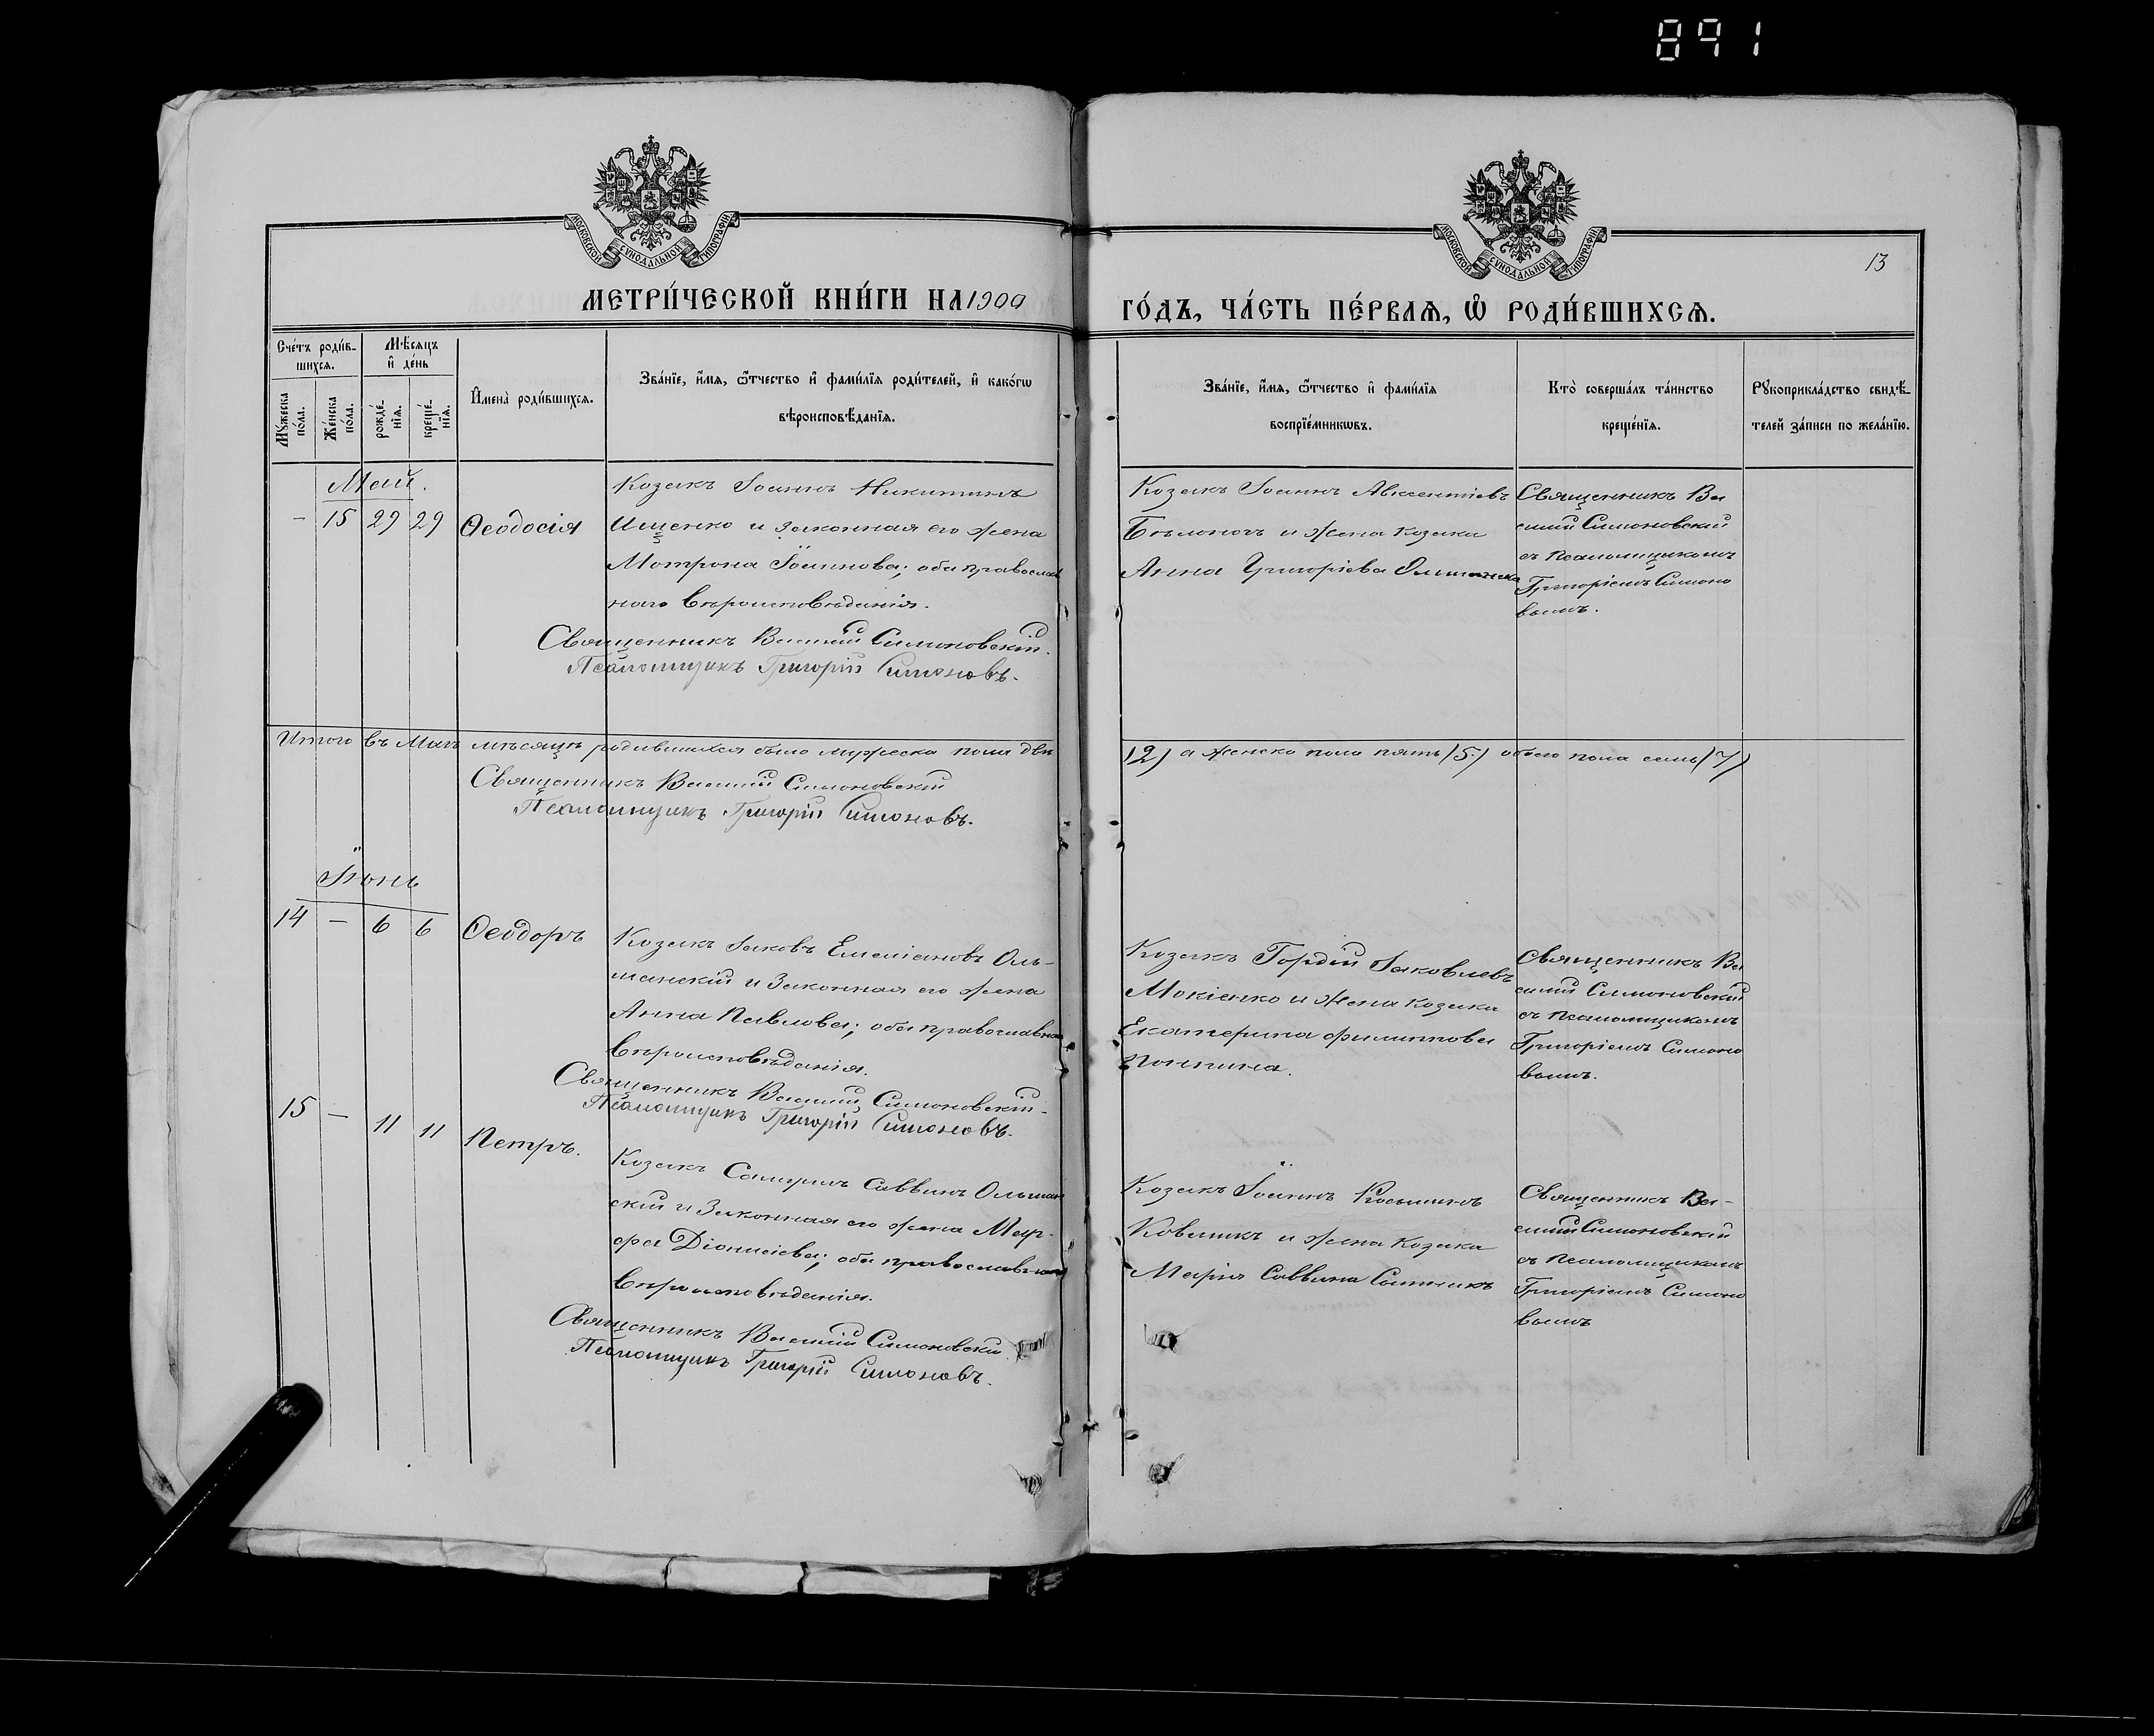 891
МОСКОВСКОЙ СѴНОДАЛЬНОЙ ТИПОГРАФІИ
МОСКОВСКОЙ СѴНОДАЛЬНОЙ ТИПОГРАФІИ
13
МЕТРИ́ЧЕСКОЙ КНИ́ГИ НА 1900
ГО́ДЪ, ЧА́СТЬ ПЕ́РВАѦ, Ѡ҆ РОДИ́ВШИХСѦ.
Сче́тъ роди́в-
шихсѧ.
Мѣ́сѧцъ
и҆ де́нь
Мꙋ́жеска по́ла.
Же́нска по́ла.
рожде́-
нїѧ.
креще́-
нїѧ.
И҆мена̀ роди́вшихсѧ.
Зва́нїе, и҆́мѧ, ѻ҆́тчество и҆ фами́лїѧ роди́телей, и҆ како́гѡ
вѣроисповѣ́данїѧ.
Зва́нїе, и҆́мѧ, ѻ҆́тчество и҆ фами́лїѧ
воспрїе́мникѡвъ.
Кто̀ соверша́лъ та́инство
креще́нїѧ.
Рꙋкоприкла́дство свидѣ́-
телей за́писи по жела́нїю.
Май.
- 15 29 29 Ѳеодосія
Козакъ Іоаннъ Никитинъ
Ищенко и законная его жена
Мотрона Іоаннова; оба православ
наго вѣроисповѣданія.
Священникъ Василій Симоновскій.
Псаломщикъ Григорій Симоновъ.
Козакъ Іоаннъ Авксентіевъ
Бѣлоногъ и жена козака
Анна Григоріева Ольшанска
Священникъ Ва
силій Симоновскій
съ псаломщикомъ
Григоріемъ Симоно
вымъ.
Итого въ Маѣ мѣсяцѣ родившихся было мужеска пола два
(2) а женска пола пять (5) обоего пола семь (7)
Священникъ Василій Симоновскій
Псаломщикъ Григорій Симоновъ.
Іюнь
14 - 6 6 Ѳеодоръ
Козакъ Іаковъ Емеліановъ Оль-
шанскій и законная его жена
Анна Павлова; оба православна
вѣроисповѣданія.
Священникъ Василій Симоновскій.
Псаломщикъ Григорій Симоновъ.
Козакъ Гордій Іаковлевъ
Мокіенко и жена козака
Екатерина Филиппова
Священникъ Ва
силій Симоновскій
съ псаломщикомъ
Григоріемъ Симоно
вымъ.
15 - 11 11 Петръ.
Козакъ Саввинъ Ольшан
скій и законная его жена Мар-
фа Діонисіева; оба православнаго
вѣроисповѣданія.
Священникъ Василій Симоновскій.
Псаломщикъ Григорій Симоновъ.
Козакъ Іоаннъ Косьминъ
и жена козака
Марія Саввина
Священникъ Ва-
силій Симоновскій
съ псаломщикомъ
Григоріемъ Симоно
вымъ